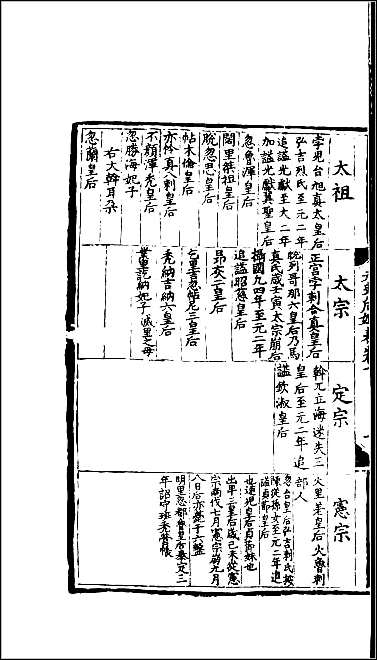 太祖
孛兒台旭真太皇后
弘吉烈氏至元二年
追諡光獻至大二年
加諡光獻翼聖皇后
忽魯渾皇后
闊里桀担皇后
脫忽思皇后
帖木倫皇后
亦怜真八剌皇后
不顏渾禿皇后
忽勝海妃子
右大斡耳朵
忽蘭皇后
太宗
正宮孛剌合真皇后
脫列哥那六皇后乃馬
真氏歲壬寅太宗崩后
攝國九四年至元二年
追諡昭慈皇后
昂灰二皇后
乞里吉忽帖尼三皇后
禿納吉納六皇后
業里訖納妃子 滅里之母
定宗
斡兀立海迷失三
皇后至元二年追
諡欽淑皇后
憲宗
火里差皇后火魯剌
部人
忽台皇后弘吉剌氏按
陳從孫女至元二年追
諡貞節皇后
也速兒皇后貞節妹也
出卑三皇后歲己未從憲
宗南伐七月憲宗崩九月
八日后亦薨于六盤
明里忽都魯皇后泰定三
年詔守班禿營帳